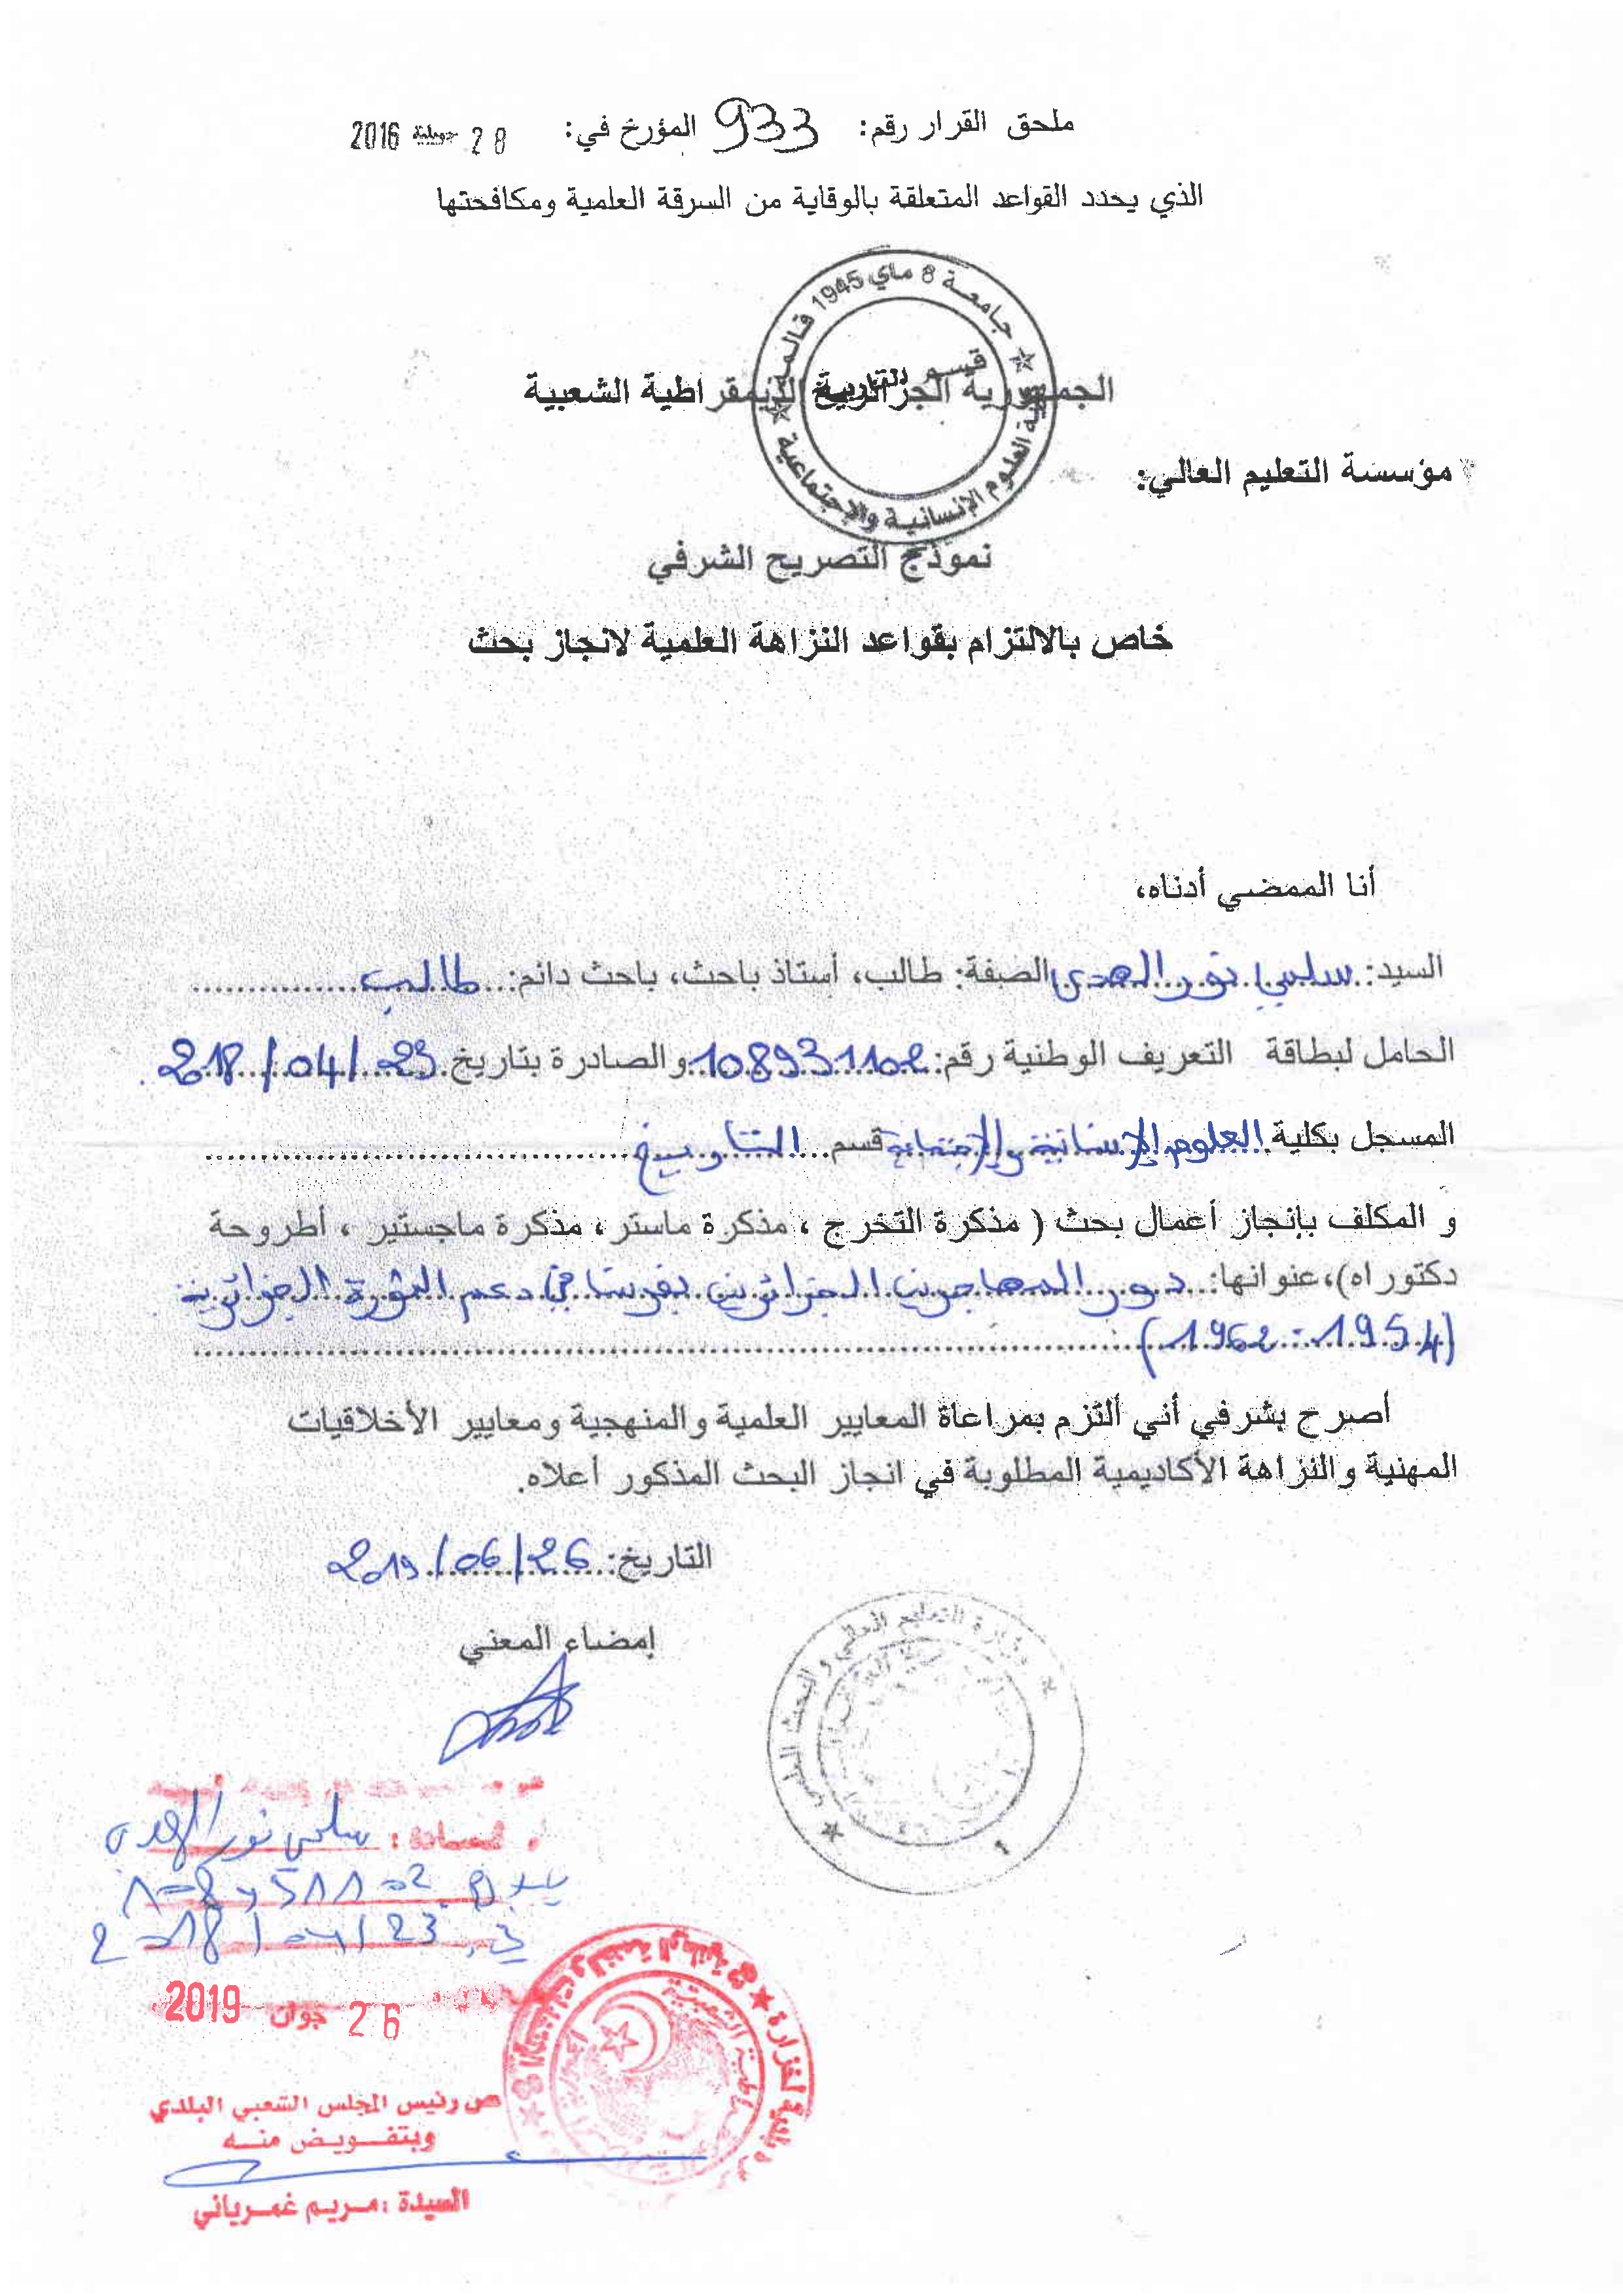 ملحق القرار رقم: 933 المؤرخ في: 28 جويلية 2016
الذي يحدد القواعد المتعلقة بالوقاية من السرقة العلمية ومكافحتها
جامعة 8 ماي 1945 قالمة
كلية العلوم الإنسانية والإجتماعية
قسم التاريخ
الجمهورية الجزائرية الديمقراطية الشعبية
مؤسسة التعليم العالي:
نموذج التصريح الشرفي
خاص بالالتزام بقواعد النزاهة العلمية لانجاز بحث
أنا الممضي أدناه،
السيد: سلمي نور الهدى الصفة: طالب، أستاذ باحث، باحث دائم: طالب
الحامل لبطاقة التعريف الوطنية رقم: 108931102 والصادرة بتاريخ 23/04/218
المسجل بكلية العلوم الإنسانية والإجتماعية قسم التاريخ
و المكلف بإنجاز أعمال بحث ( مذكرة التخرج ، مذكرة ماستر ، مذكرة ماجستير ، أطروحة
دكتوراه)، عنوانها: دور المهاجرين الجزائريين بفرنسا في دعم الثورة الجزائرية
(1954-1962)
أصرح بشرفي أني ألتزم بمراعاة المعايير العلمية والمنهجية ومعايير الأخلاقيات
المهنية والنزاهة الأكاديمية المطلوبة في انجاز البحث المذكور أعلاه.
التاريخ: 26/06/2019
إمضاء المعني
وزارة التعليم العالي والبحث العلمي
سلمي نور الهدى
في 23/04/2018
26 جوان 2019
عن رئيس المجلس الشعبي البلدي
وبتفويض منه
السيدة : مريم غمرياني